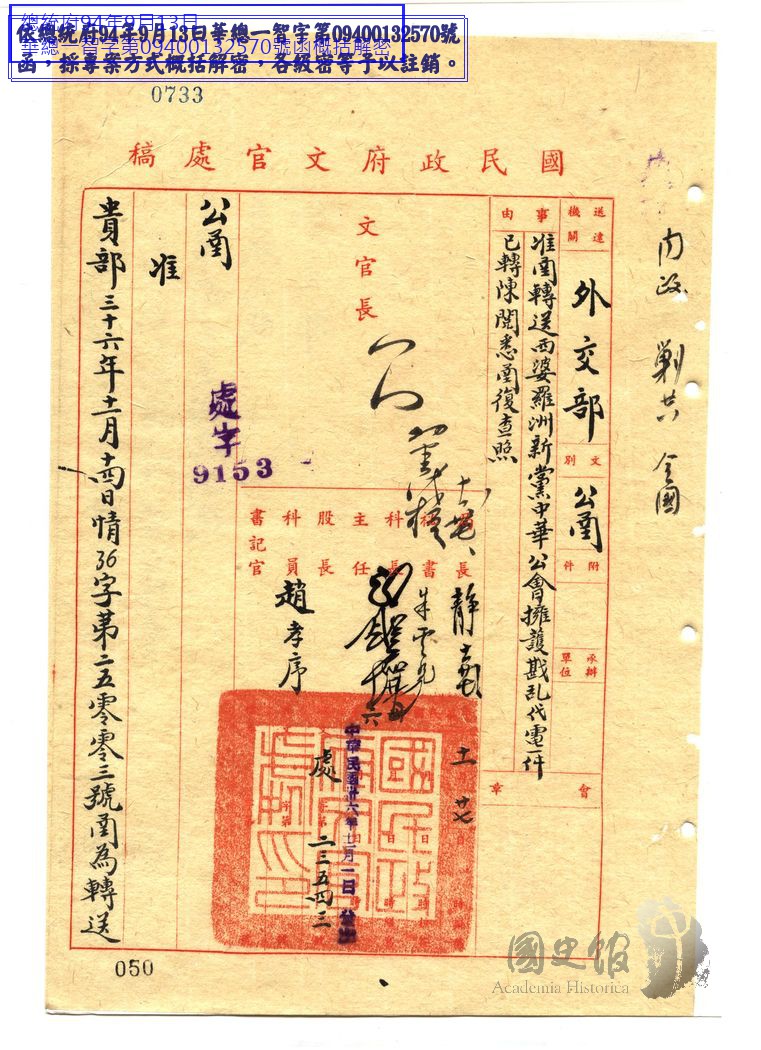 總統府94年9月13日
華總一智字第09400132570號函概括解密
依總統府94年9月13日華總一智字第09400132570號
函，採專案方式概括解密，各級密等予以註銷。
0733
國民政府文官處稿
內政
全國
送達機關
外交部
文別
公函
附件
承辦單位
事由
准函轉送西婆羅洲新黨中華公會擁護戡乱代電一件
已轉陳閱悉函復查照
會章
文官長
局長
秘書
科長
主任
股長
科員
書記官
趙孝序
朱雲見
十一
廿七
中華民國卅六年十二月一日
處
二三五四三
處字
9153
公函
准
貴部三十六年十二月十四日情36字第二五零零三號函為轉送
050
國史館
Academia Historica